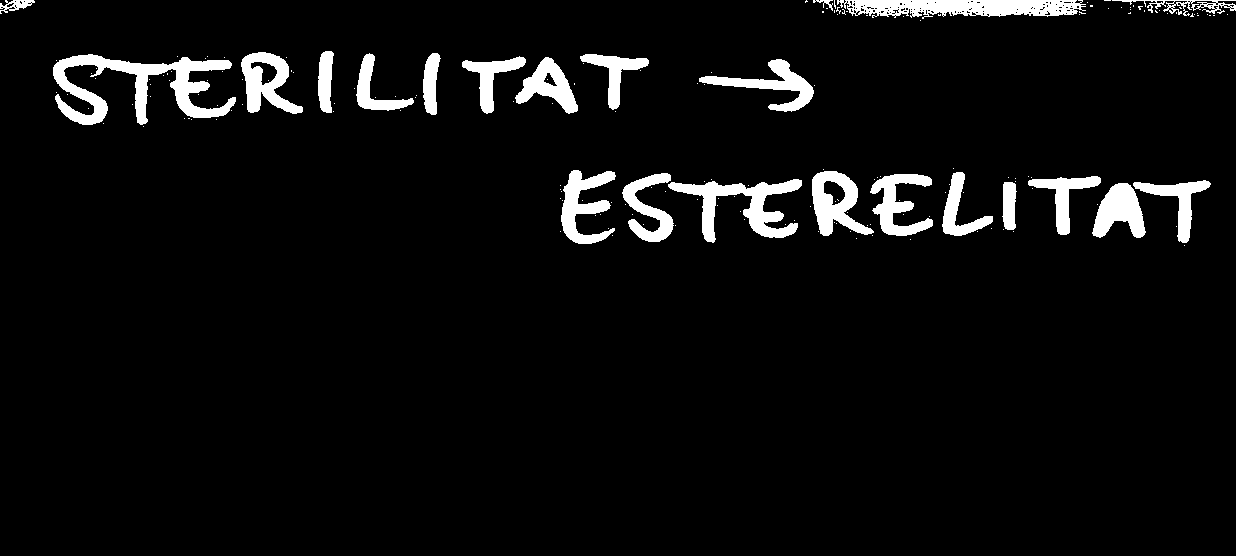 STERILITAT →
ESTERELITAT